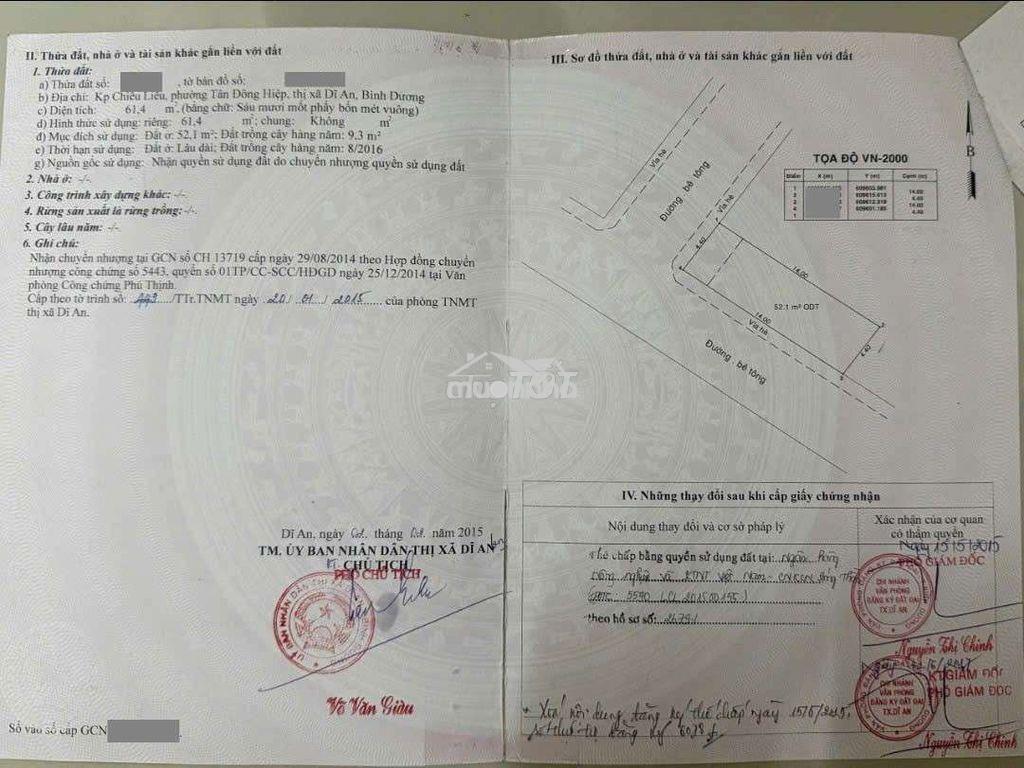 II. Thửa đất, nhà ở và tài sản khác gắn liền với đất
1. Thửa đất:
a) Thửa đất số: , tờ bản đồ số:
b) Địa chỉ: Kp Chiêu Liêu, phường Tân Đông Hiệp, thị xã Dĩ An, Bình Dương
c) Diện tích: 61,4 m². (bằng chữ: Sáu mươi mốt phẩy bốn mét vuông)
d) Hình thức sử dụng: riêng: 61,4 m²; chung: Không m²
đ) Mục đích sử dụng: Đất ở: 52,1 m²; Đất trồng cây hàng năm: 9.3 m²
e) Thời hạn sử dụng: Đất ở: Lâu dài; Đất trồng cây hàng năm: 8/2016
g) Nguồn gốc sử dụng: Nhận quyền sử dụng đất do chuyển nhượng quyền sử dụng đất
2. Nhà ở: -/-
3. Công trình xây dựng khác: -/-
4. Rừng sản xuất là rừng trồng: -/-.
5. Cây lâu năm: -/-
6. Ghi chú:
Nhận chuyển nhượng tại GCN số CH 13719 cấp ngày 29/08/2014 theo Hợp đồng chuyển
nhượng công chứng số 5443, quyển số 01TP/CC-SCC/HĐGD ngày 25/12/2014 tại Văn
phòng Công chứng Phú Thịnh.
Cấp theo tờ trình số: /TTr.TNMT ngày 20/01/2015 của phòng TNMT
thị xã Dĩ An.
Dĩ An, ngày tháng năm 2015
TM. ỦY BAN NHÂN DÂN THỊ XÃ DĨ AN
KT. CHỦ TỊCH
PHÓ CHỦ TỊCH
Võ Văn Giàu
Số vào sổ cấp GCN
III. Sơ đồ thửa đất, nhà ở và tài sản khác gắn liền với đất
B
TỌA ĐỘ VN-2000
Điểm X (m) Y (m) Cạnh (m)
1
2 14.00
3 4.40
4 14.00
1 4.40
Vỉa hè
Đường bê tông
4.40
14.00
52.1 m² ODT
14.00
4.40
Vỉa hè
Đường bê tông
muaBĐS
IV. Những thay đổi sau khi cấp giấy chứng nhận
Nội dung thay đổi và cơ sở pháp lý
Xác nhận của cơ quan
có thẩm quyền
Ngày 15/5/2015
PHÓ GIÁM ĐỐC
Thế chấp bằng quyền sử dụng đất tại: Ngân hàng
Nông nghiệp và PTNT Việt Nam
theo hồ sơ số:
CHI NHÁNH
VĂN PHÒNG
ĐĂNG KÝ ĐẤT ĐAI
TX.DĨ AN
Nguyễn Thị Chinh
KT.GIÁM ĐỐC
PHÓ GIÁM ĐỐC
* Xoá nội dung đăng ký thế chấp ngày 15/5/2015,
CHI NHÁNH
VĂN PHÒNG
ĐĂNG KÝ ĐẤT ĐAI
TX.DĨ AN
Nguyễn Thị Chinh